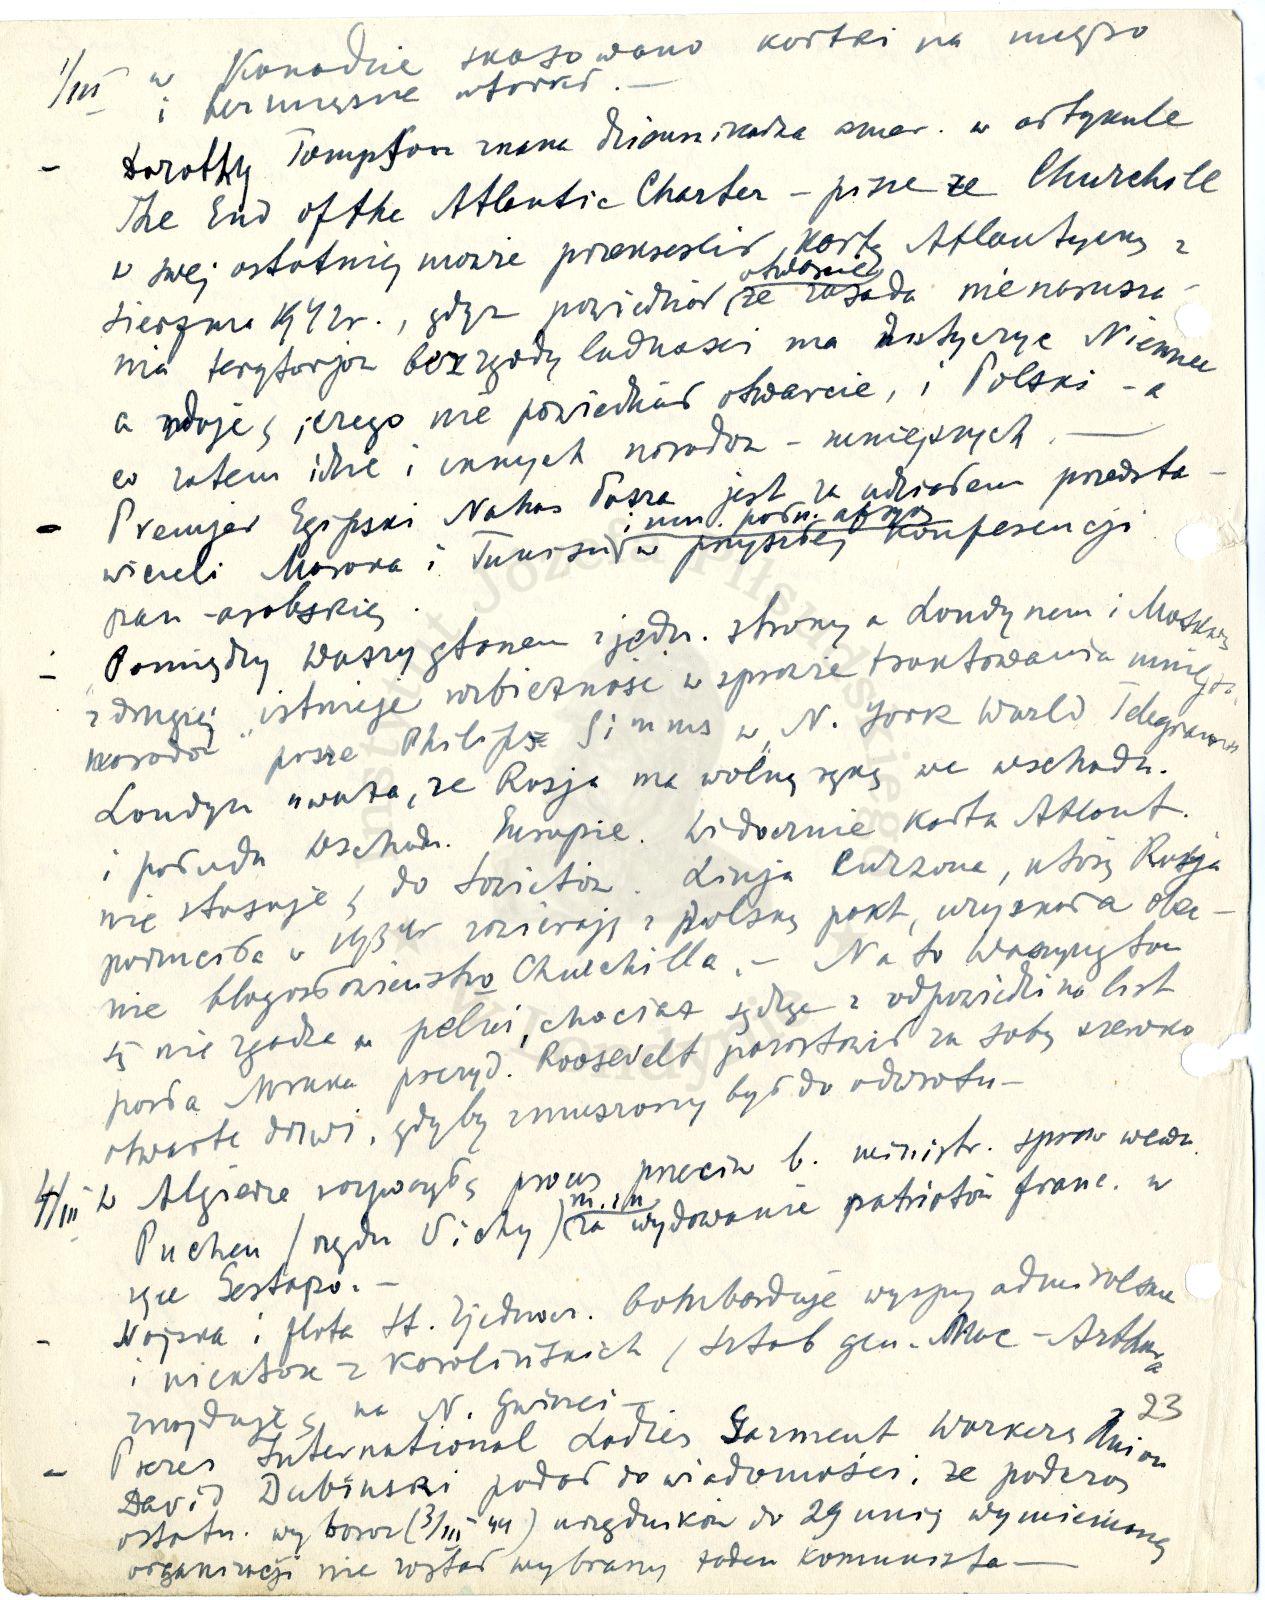 1/III w Kanadzie skasowano kartki na mięso
i bezmięsne wtorki. —
- Dorothy Tompson znana dziennikarka amer. w artykule
The End of the Atlantic Charter - pisze że Churchill
w swej ostatniej mowie przekreślił Kartę Atlantycką z
sierpnia 1942r., gdyż powiedział otwarcie że zasada nienarusza-
nia terytorjów bez zgody ludności ma dotyczyć Niemiec
a zdaje ś, czego nie powiedział otwarcie, i Polski - a
co zatem idzie i innych narodów - mniejszych. —
- Premjer Egipski Nahas Pasza jest za udziałem przedsta-
wicieli Maroka i Tunisu i inn. półn. afryk. w przyszłej Konferencji
pan-arabskiej.
- Pomiędzy Waszyngtonem z jedn. strony a Londynem i Moskwą
z drugiej "istnieje rozbieżność w sprawie traktowania mniejsz.
narodów" pisze Philips Simms w „N. York World Telegram"
Londyn uważa, że Rosja ma wolną rękę we wschodn.
i połudn wschodn. Europie. Widocznie Karta Atlant.
nie stosuje ś do Sowietów. Linja Curzona, którą Rosja
porzuciła w 1934r zawierając z Polską pakt, uzyskała obec-
nie błogosławieństwo Churchilla. - Na to Waszyngton
się nie zgadza w pełni, chociaż sądząc z odpowiedzi na list
posła Mruka prezyd. Roosevelt pozostawił za sobą szeroko
otwarte drzwi, gdyby zmuszony był do odwrotu -
4/III w Algierze rozpoczął ś proces przeciw b. ministr. spraw wewn.
Pucheu (rządu Vichy) m. in za wydawanie patriotów franc. w
ręce Gestapo. -
- Wojska i flota St. Zjednocz. bombarduje wyspy admiralskie
i niektóre z Karolińskich (sztab gen. Mac-Arthura
znajduje ś na N. Gwinei -
23
- Prezes International Ladies Garment Workers Union
David Dubinski podał do wiadomości, że podczas
ostatn. wyborów (3/III 44) urzędników do 29 unij wymienionej
organizacji nie został wybrany żaden komunista —
Instytut Józefa Piłsudskiego
w Londynie